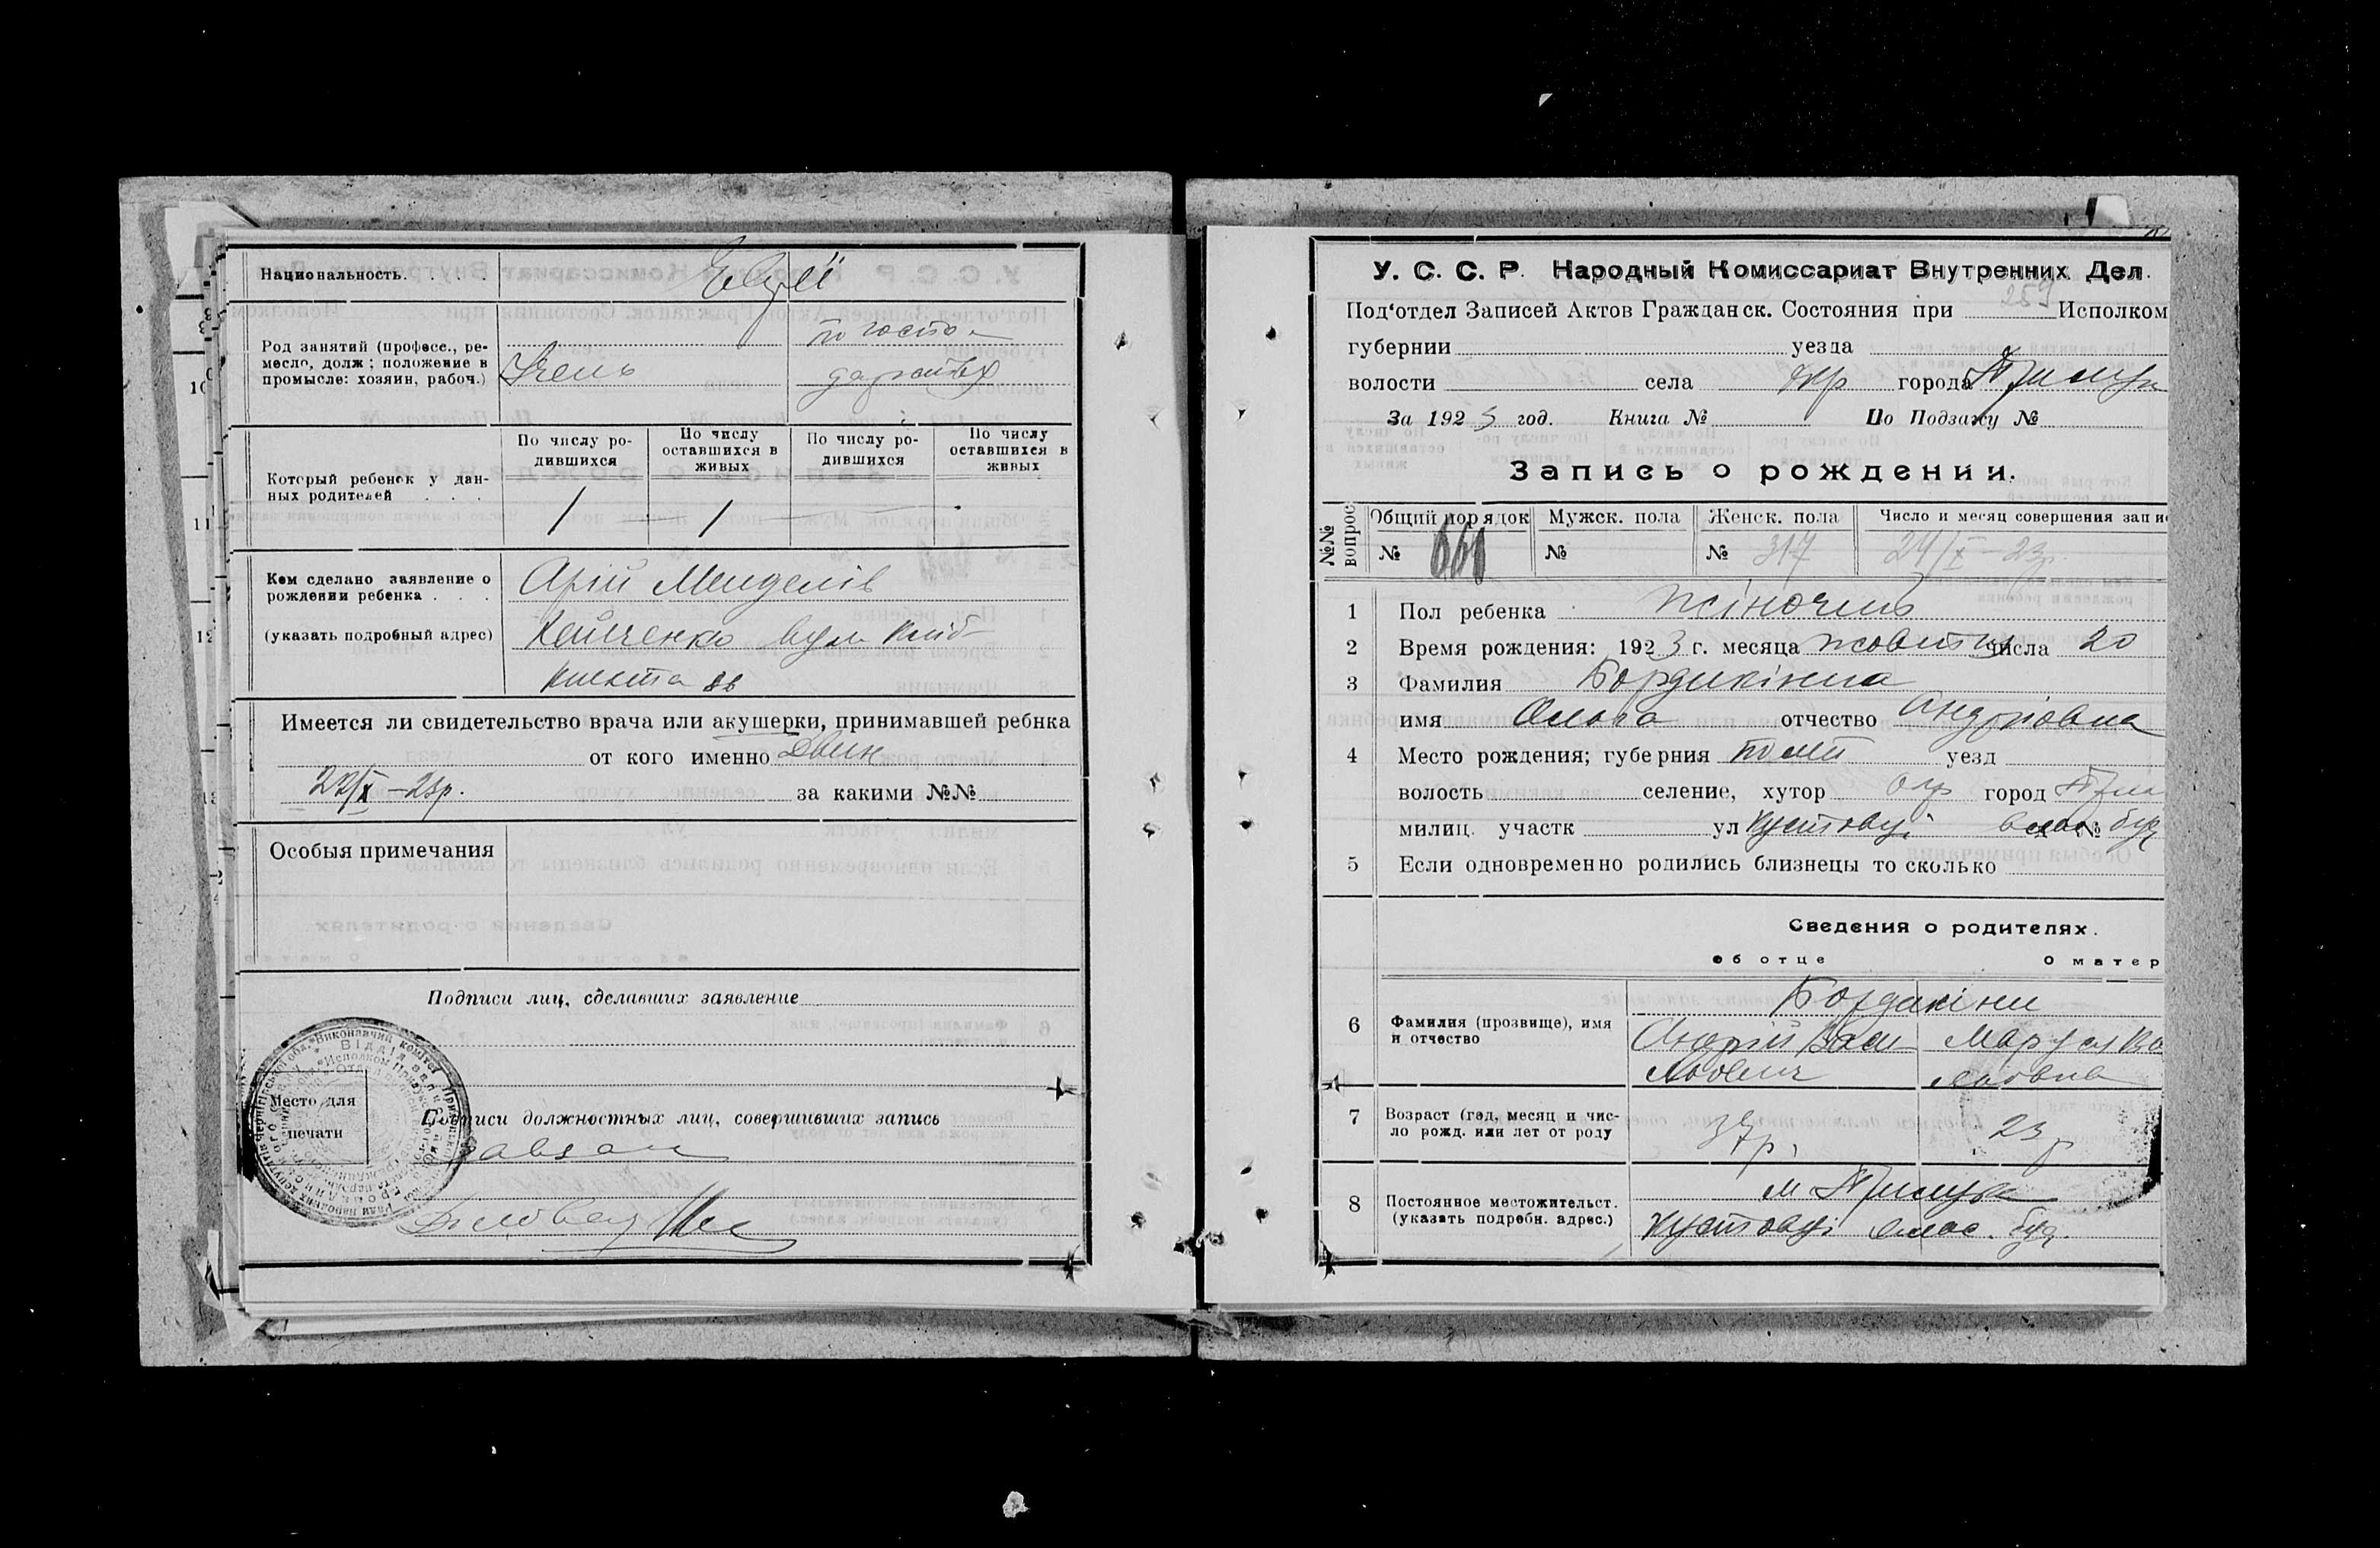 Национальность. . . . Евреї
Род занятий (професс., ре-
месло, долж; положение в
промысле: хозяин, рабоч.)
по госпо-
дарству
Который ребенок у дан-
ных родителей . . .
По числу ро-
дившихся
По числу
оставшихся в
живых
По числу ро-
дившихся
По числу
оставшихся в
живых
1 1
Кем сделано заявление о
рождении ребенка . . .
(указать подробный адрес)
Арій Менделів
вул.
Имеется ли свидетельство врача или акушерки, принимавшей ребнка
от кого именно
22/X-23р. за какими №№
Особыя примечания
Подписи лиц, сделавших заявление
Место для
печати
Подписи должностных лиц, совершивших запись
У. С. С. Р. Народный Комиссариат Внутренних Дел.
Под‘отдел Записей Актов Гражданск. Состояния при 259 Исполком
губернии уезда
волости села окр города Прилуки
За 1923 год. Книга № По Подзажу №
Запись о рождении.
№№ вопрос
Общий порядок Мужск. пола Женск. пола Число и месяц совершения запис
№ 661 № № 317 24/X-23р.
1 Пол ребенка жіночий
2 Время рождения: 1923 г. месяца жовтня числа 20
3 Фамилия Бордикіна
имя Ольга отчество Андріовна
4 Место рождения; губерния Полт уезд
волость селение, хутор окр город При
милиц. участк ул Кустовці влас № буд
5 Если одновременно родились близнецы то сколько
Сведения о родителях.
об отце О матер
6 Фамилия (прозвище), имя
и отчество
Бордикіни
Андрій Васи
льович
Маруся Ва
сильовна
7 Возраст (год, месяц и чис-
ло рожд. или лет от роду
37р. 23р
8 Постоянное местожительст.
(указать подробн. адрес.)
м Прилука
Кустовці влас. буд.